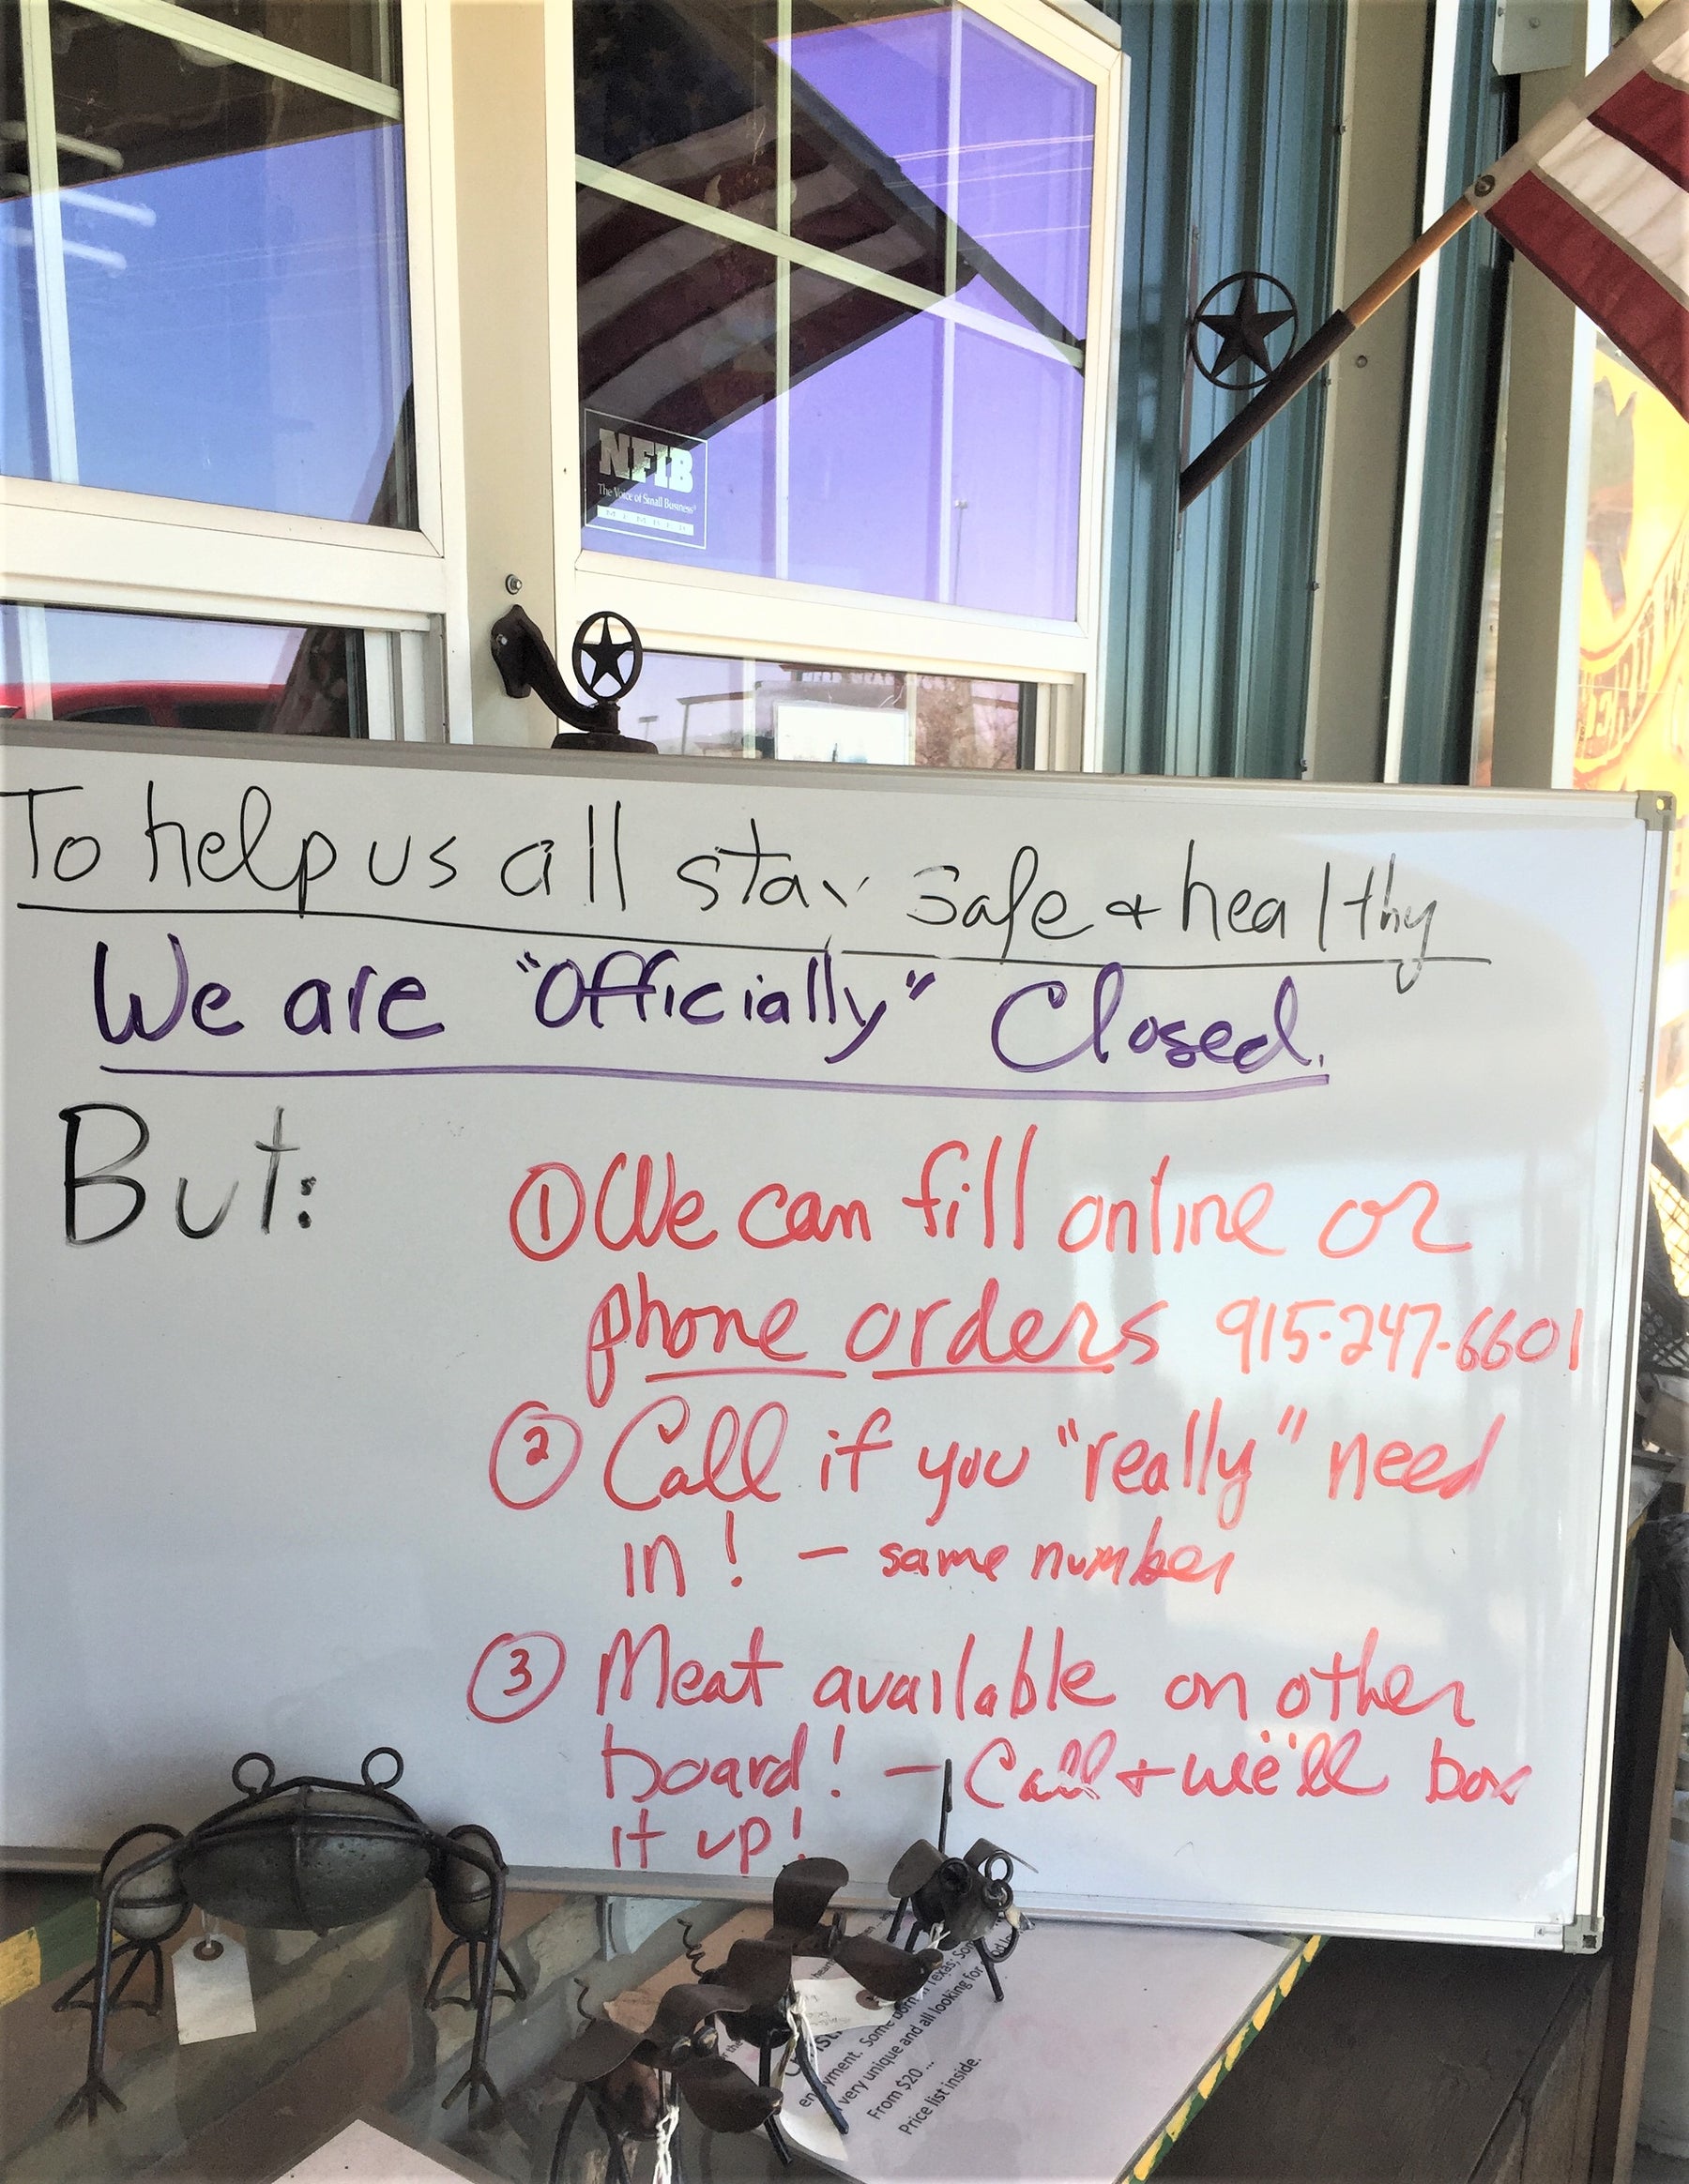 NFIB
The Voice of Small Business
MEMBER
To help us all stay safe + healthy
We are "Officially" Closed.
But:
① We can fill online or
phone orders 915-247-6601
② Call if you "really" need
in! – same number
③ Meat available on other
board! – Call + we'll box
it up!
Texas, Som
enjoyment. Some born
very unique and all looking for
From $20 ...
Price list inside.